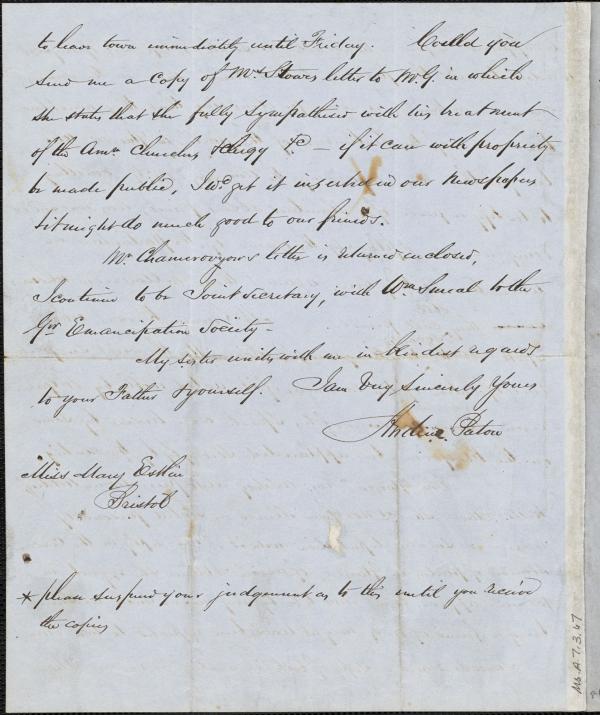 to leave town immediately until Friday. Could you
send me a Copy of Mrs Stowes letter to Mr G. in which
she states that she fully sympathises with his treatment
of the Amn Churches & Clergy &c – if it can with propriety
be made public, I wd get it inserted in our Newspapers
& it might do much good to our friends.
Mr Chamerovzow's letter is returned enclosed,
I continue to be Joint Secretary, with Wm Smeal to the
Gw Emancipation Society –
My sister unites with me in kindest regards
to your Father & yourself. I am Very Sincerely Yours
Andrew Paton
Miss Mary Estlin
Bristol
* please suspend your judgement as to this until you receive
the copies
Ms.A.7.3.47